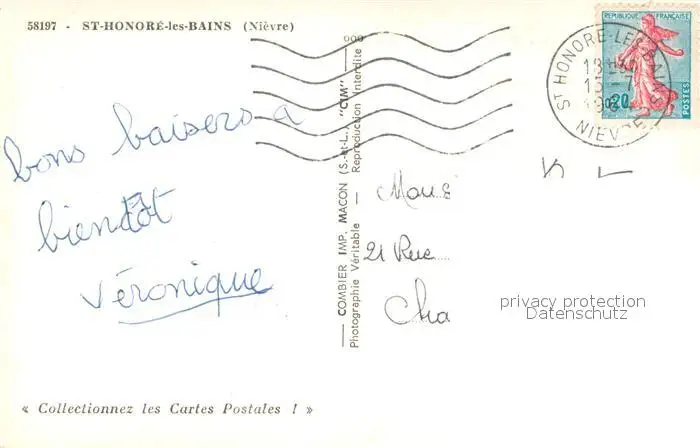 58197 - ST-HONORÉ-les-BAINS (Nièvre)
bons baisers à
bientôt
Véronique
« Collectionnez les Cartes Postales ! »
COMBIER IMP. MACON (S.-et-L.) "CIM"
Photographie Véritable — Reproduction Interdite
REPUBLIQUE FRANÇAISE
0,20
POSTES
ST HONORÉ-LES-BAINS
13-7
NIEVRE
21 Rue
Cha
privacy protection
Datenschutz